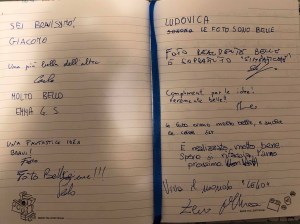 SEI BRAVISSIMO!
GIACOMO
Una più bella dell'altra
Carlo
MOLTO BELLO
EMMA G.S
UNA FANTASTICA IDEA
BRAVI!
Foto Bellissime!!!
LUDOVICA
LE FOTO SONO BELLE
FOTO VERAMENTE BELLE
E SOPRATTUTTO "SIMPATICHE"
Complimenti per le idee!
veramente belle!!
le foto erano molto belle, e anche
le idee
È realizzata molto bene
Spero si rifaccia l'anno
prossimo
Viva il mondo "LEGO"